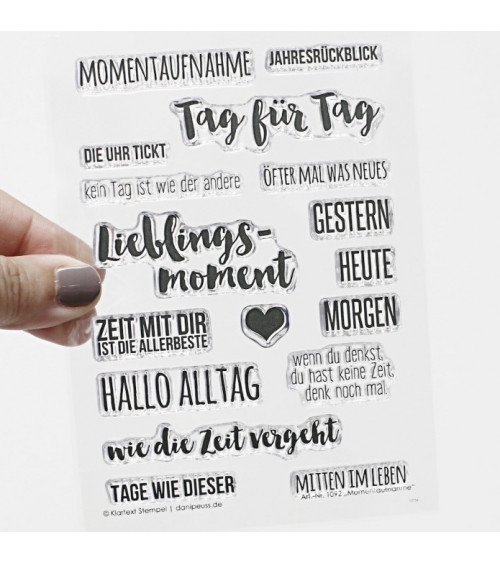 MOMENTAUFNAHME
JAHRESRÜCKBLICK
Tag für Tag
DIE UHR TICKT
kein Tag ist wie der andere
ÖFTER MAL WAS NEUES
Lieblings-
moment
GESTERN
HEUTE
MORGEN
ZEIT MIT DIR
IST DIE ALLERBESTE
wenn du denkst,
du hast keine Zeit,
denk noch mal
HALLO ALLTAG
wie die Zeit vergeht
TAGE WIE DIESER
MITTEN IM LEBEN
Art.-Nr. 1092 „Momentaufnahme"
© Klartext Stempel | danipeuss.de